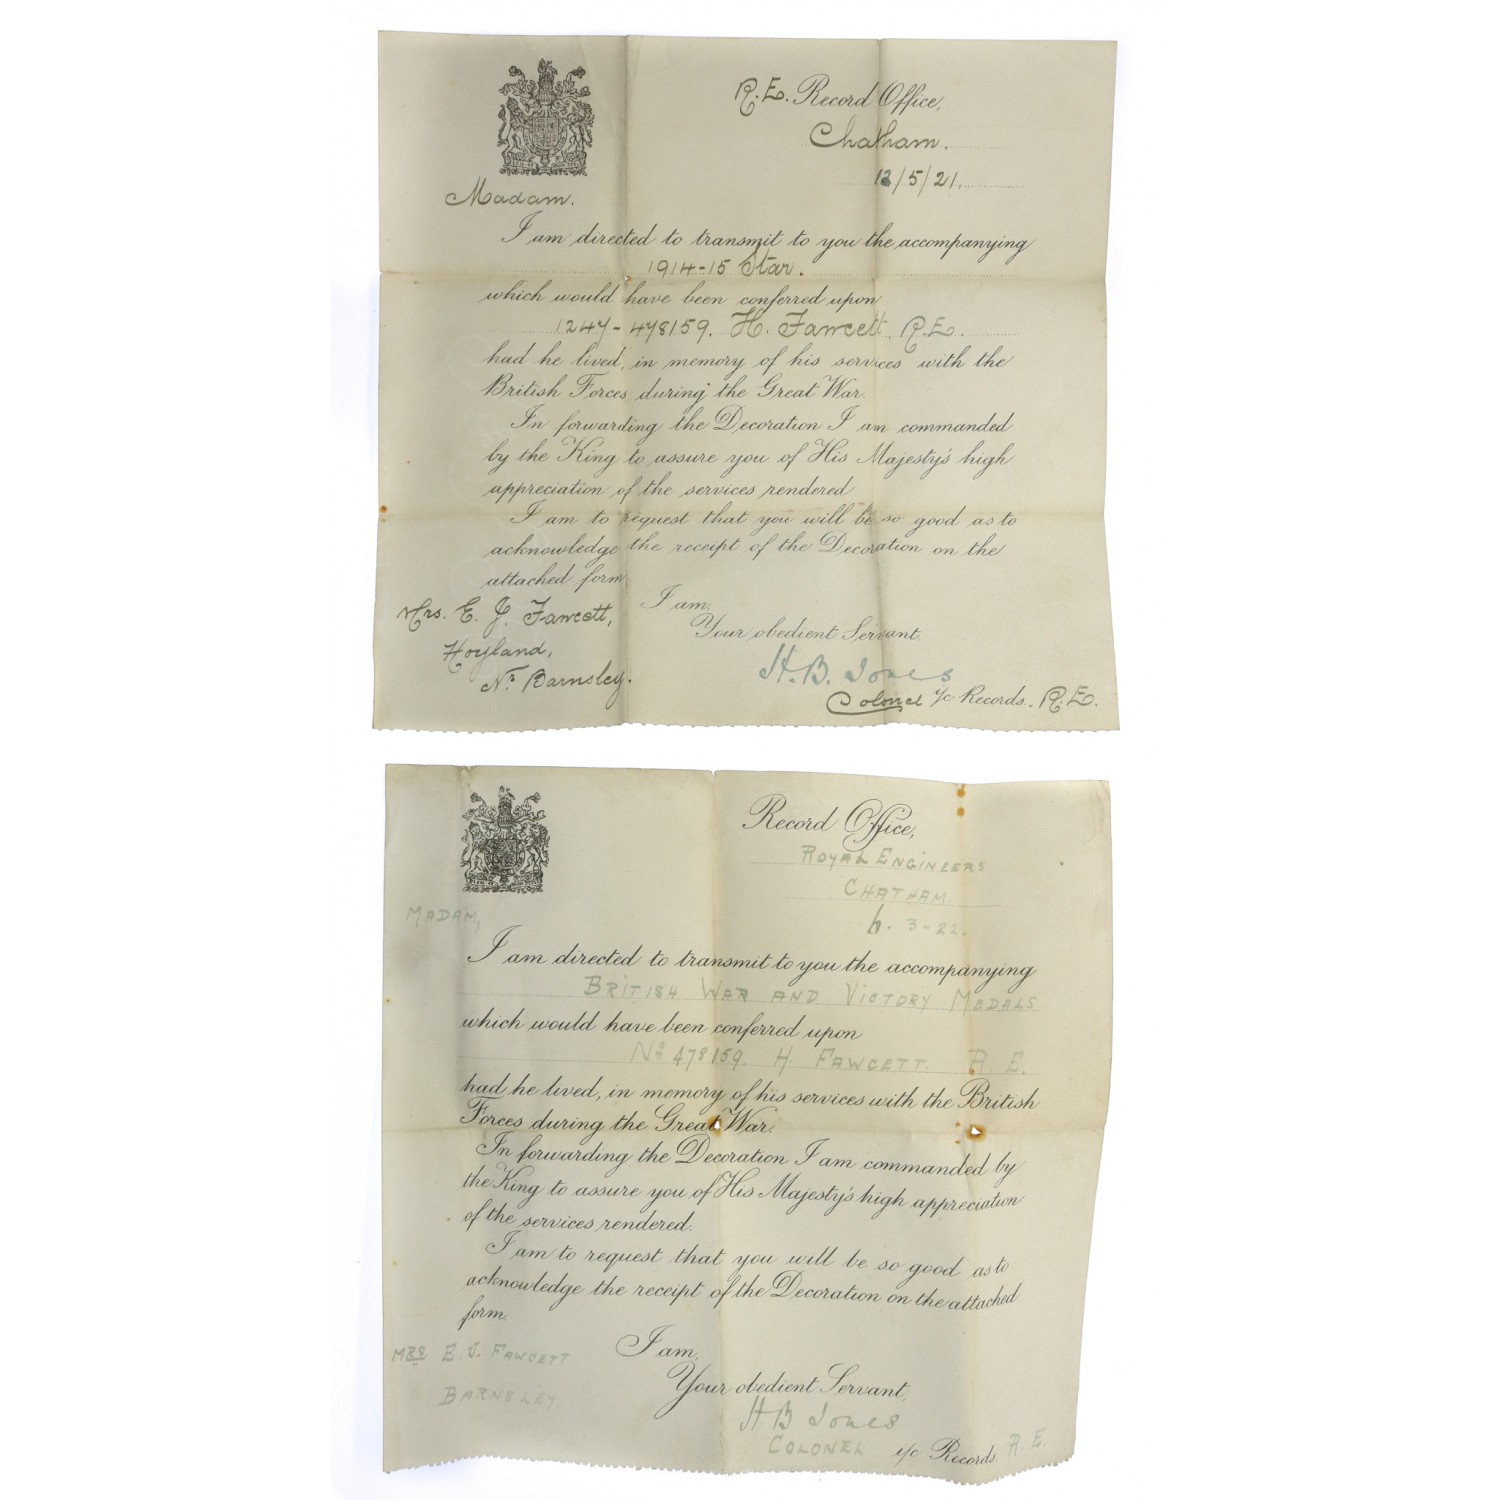 R.E. Record Office,
Chatham.
13/5/21.
Madam.
I am directed to transmit to you the accompanying
1914-15 Star.
which would have been conferred upon
1247-478159. H. Fawcett. R.E.
had he lived, in memory of his services with the
British Forces during the Great War.
In forwarding the Decoration I am commanded
by the King to assure you of His Majesty's high
appreciation of the services rendered
I am to request that you will be so good as to
acknowledge the receipt of the Decoration on the
attached form.
I am,
Your obedient Servant.
H. B. Jones
Colonel i/c Records. R.E.
Mrs. E. J. Fawcett,
Hoyland,
Nr. Barnsley.
Record Office,
ROYAL ENGINEERS
CHATHAM.
3-22.
MADAM,
I am directed to transmit to you the accompanying
BRITISH WAR AND VICTORY MEDALS
which would have been conferred upon
No 478159. H. FAWCETT. R.E.
had he lived, in memory of his services with the British
Forces during the Great War.
In forwarding the Decoration I am commanded by
the King to assure you of His Majesty's high appreciation
of the services rendered.
I am to request that you will be so good as to
acknowledge the receipt of the Decoration on the attached
form.
I am,
Your obedient Servant,
H B Jones
COLONEL i/c Records R.E.
MRS E. J. FAWCETT
BARNSLEY